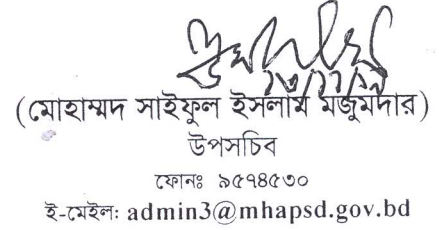 (মোহাম্মদ সাইফুল ইসলাম মজুমদার)
উপসচিব
ফোনঃ ৯৫৭৪৫৩০
ই-মেইল: admin3@mhapsd.gov.bd